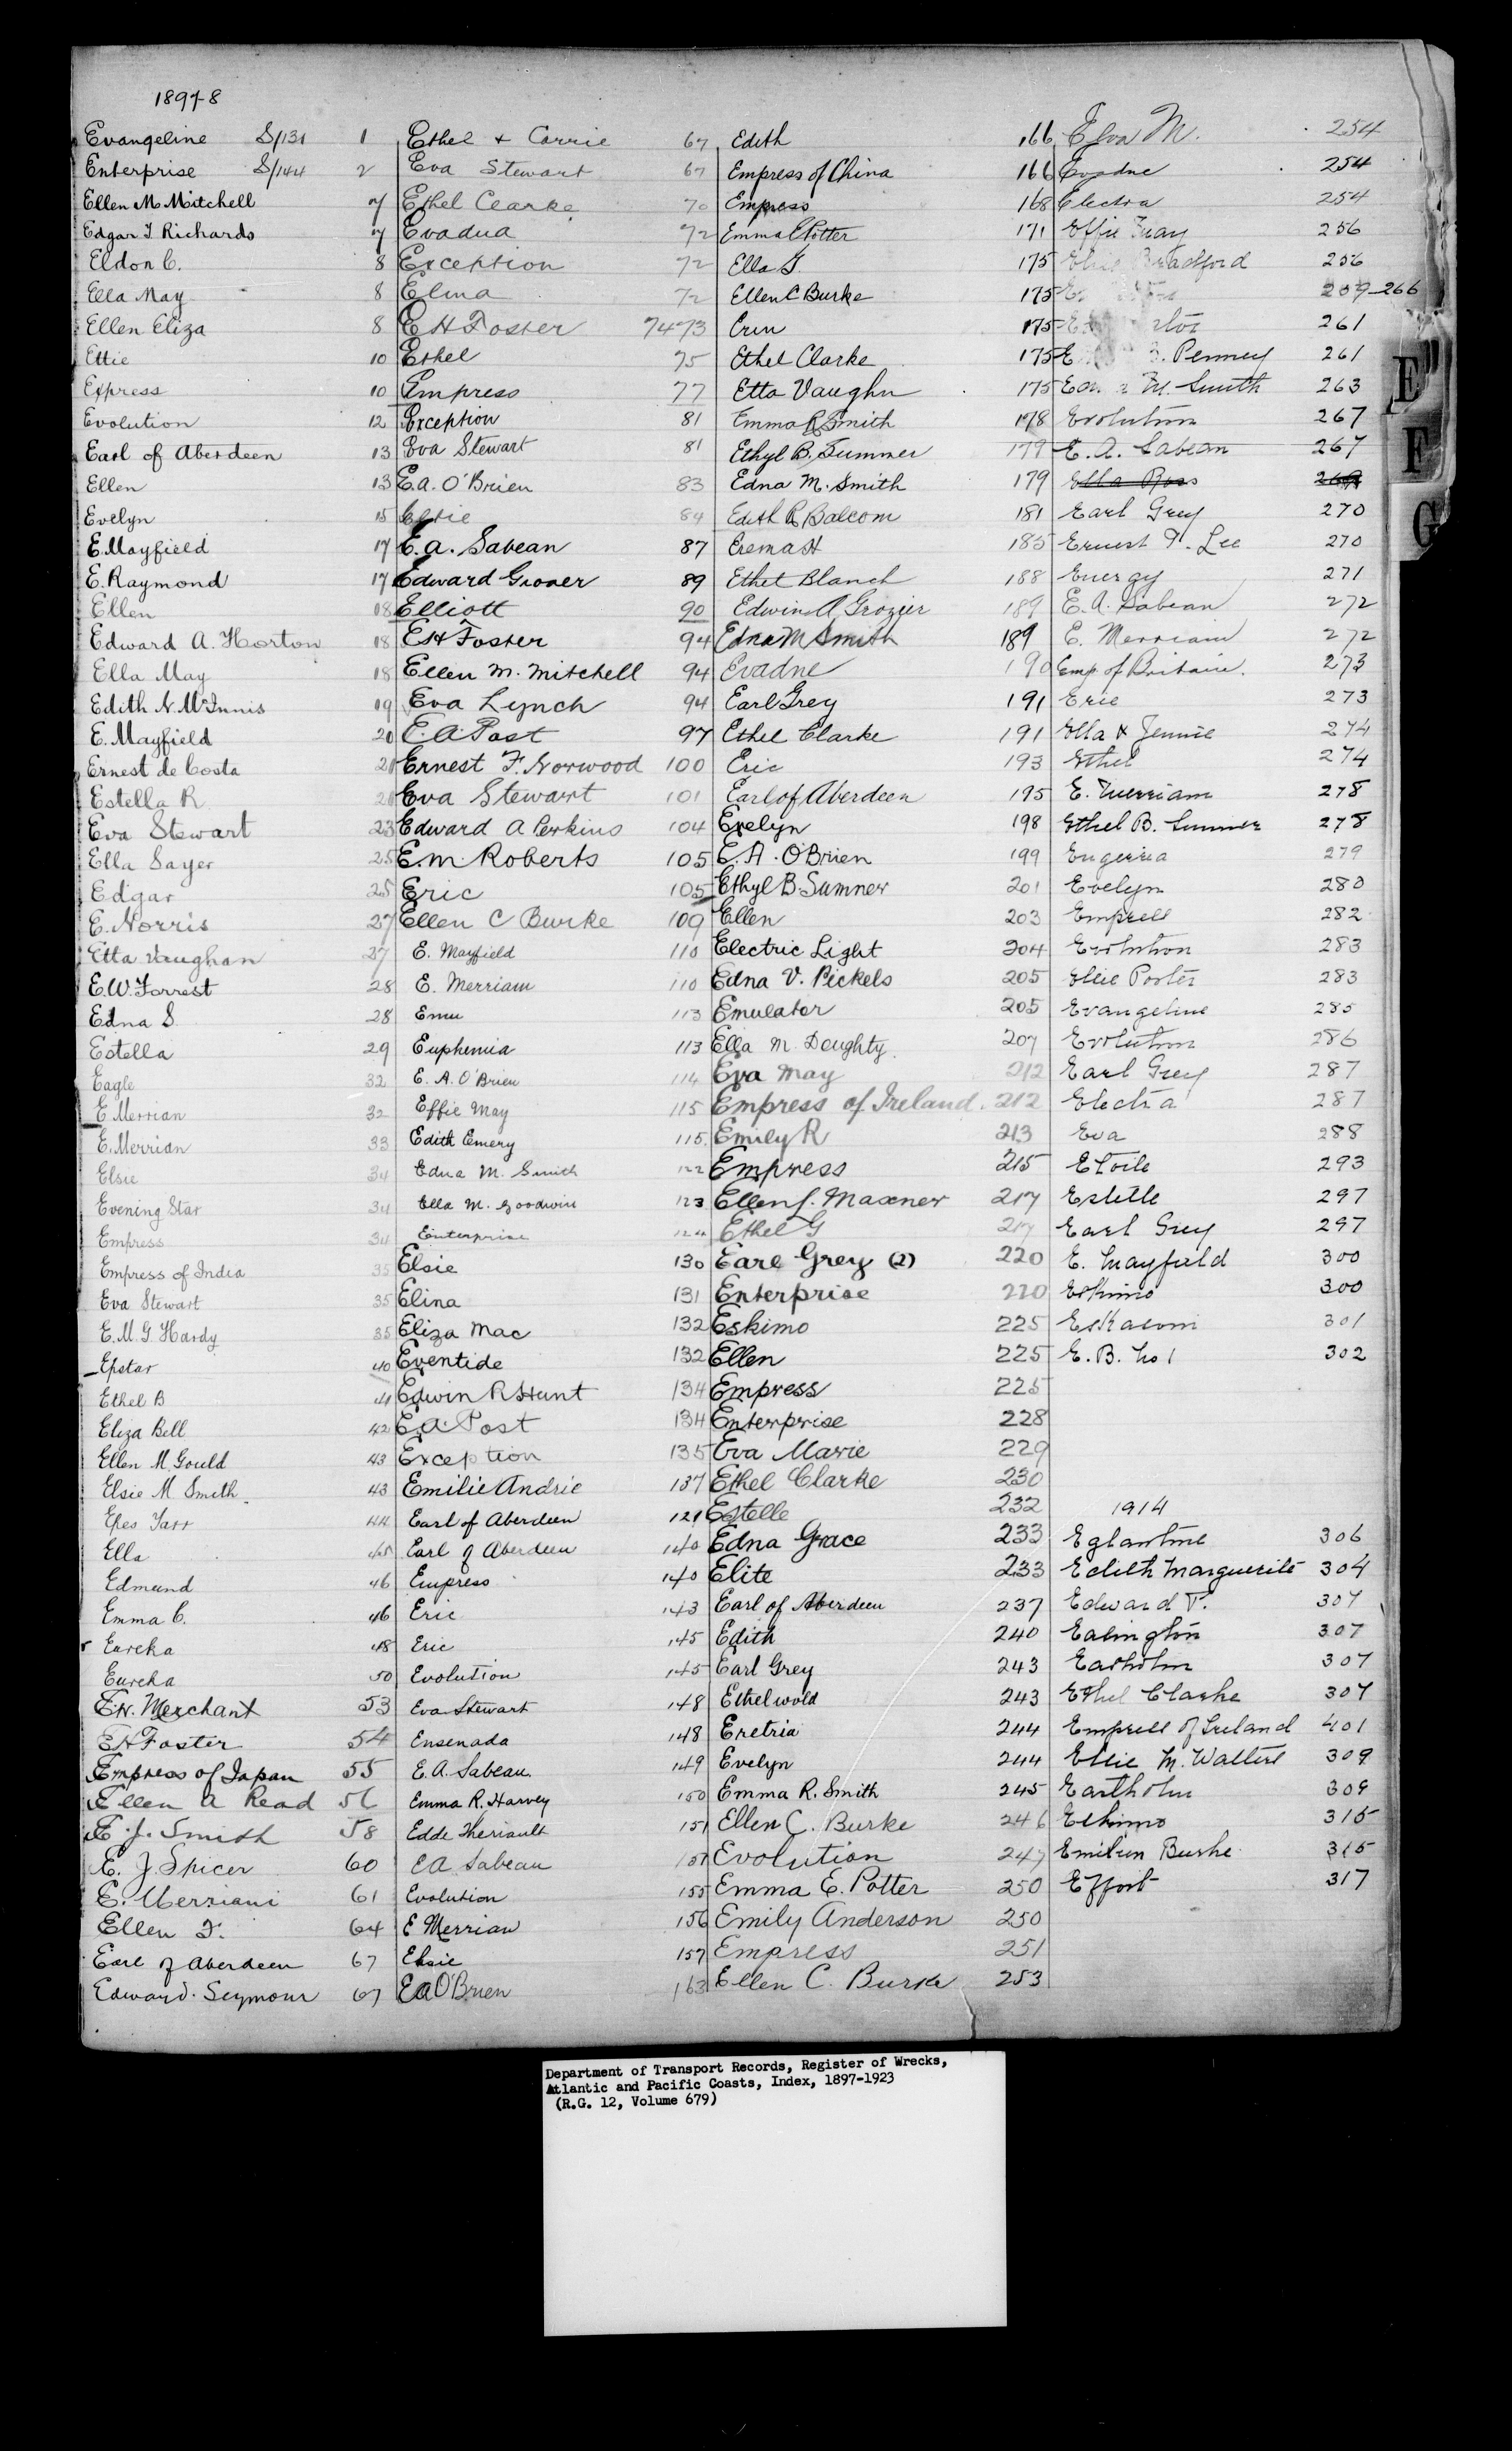 1897-8
Evangeline S/131 1
Enterprise S/144 2
Ellen M Mitchell 7
Edgar T Richards 7
Eldon C. 8
Ella May 8
Ellen Eliza 8
Ettie 10
Express 10
Evolution 12
Earl of Aberdeen 13
Ellen 13
Evelyn 15
E. Mayfield 17
E. Raymond 17
Ellen 18
Edward A. Horton 18
Ella May 18
Edith N. McInnis 19
E. Mayfield 20
Ernest de Costa 21
Estella R 21
Eva Stewart 23
Ella Sayer 25
Edgar 25
E. Norris 27
Etta Vaughan 27
E.W. Forrest 28
Edna S 28
Estella 29
Eagle 32
E Merrian 32
E. Merrian 33
Elsie 34
Evening Star 34
Empress 34
Empress of India 35
Eva Stewart 35
E.M.G. Hardy 35
Epstar 40
Ethel B 41
Eliza Bell 42
Ellen M. Gould 43
Elsie M Smith 43
Epes Tarr 44
Ella 45
Edmund 46
Emma C. 46
Eureka 48
Eureka 50
E.W. Merchant 53
E H Foster 54
Empress of Japan 55
Ellen A Read 56
E. J. Smith 58
E. J. Spicer 60
E. Merriam 61
Ellen F. 64
Earl of Aberdeen 67
Edward Seymour 67
Ethel & Carrie 67
Eva Stewart 67
Ethel Clarke 70
Evadua 72
Exception 72
Elma 72
E H Foster 7473
Ethel 75
Empress 77
Exception 81
Eva Stewart 81
E.A. O'Brien 83
Elsie 84
E.A. Sabean 87
Edward Grover 89
Elliott 90
E H Foster 94
Ellen M. Mitchell 94
Eva Lynch 94
E.A. Post 97
Ernest F. Norwood 100
Eva Stewart 101
Edward A Perkins 104
E.M. Roberts 105
Eric 105
Ellen C Burke 109
E. Mayfield 110
E. Merriam 110
Emu 113
Euphemia 113
E. A. O'Brien 114
Effie May 115
Edith Emery 115
Edna M. Smith 122
Ella M. Goodwin 123
Enterprise 124
Elsie 130
Elina 131
Eliza Mac 132
Eventide 132
Edwin R Hunt 134
E.A. Post 134
Exception 135
Emilie Andrie 137
Earl of Aberdeen 121
Earl of Aberdeen 140
Empress 140
Eric 143
Eric 145
Evolution 145
Eva Stewart 148
Ensenada 148
E.A. Sabean 149
Emma R. Harvey 150
Edde Theriault 151
E A Sabean 151
Evolution 155
E Merrian 156
Elsie 157
E A O'Brien 163
Edith 166
Empress of China 166
Empress 168
Emma E Potter 171
Ella G. 175
Ellen C Burke 175
Erin 175
Ethel Clarke 175
Etta Vaughn 175
Emma R Smith 178
Ethyl B. Summer 179
Edna M. Smith 179
Edith R Balcom 181
Erema H 185
Ethel Blanch 188
Edwin A Grozier 189
Edna M Smith 189
Evadne 190
Earl Grey 191
Ethel Clarke 191
Eric 193
Earl of Aberdeen 195
Evelyn 198
E. A. O'Brien 199
Ethyl B Sumner 201
Ellen 203
Electric Light 204
Edna V. Pickels 205
Emulator 205
Ella M. Doughty 207
Eva May 212
Empress of Ireland. 212
Emily R 213
Empress 215
Ellen L. Maxner 217
Ethel G 217
Earl Grey (2) 220
Enterprise 220
Eskimo 225
Ellen 225
Empress 225
Enterprise 228
Eva Marie 229
Ethel Clarke 230
Estelle 232
Edna Grace 233
Elite 233
Earl of Aberdeen 237
Edith 240
Earl Grey 243
Ethelwold 243
Eretria 244
Evelyn 244
Emma R. Smith 245
Ellen C. Burke 246
Evolution 247
Emma E. Potter 250
Emily Anderson 250
Empress 251
Ellen C. Burke 253
Elva M. 254
Evadne 254
Electra 254
Effie May 256
Bradford 256
209-266
261
E Penney 261
M. Smith 263
Evolution 267
E. A. Sabean 267
Ella Ross
Earl Grey 270
Ernest T. Lee 270
Energy 271
E. A. Sabean 272
E. Merriam 272
Emp of Britain. 273
Erie 273
Ella & Jennie 274
Ethel 274
E. Merriam 278
Ethel B. Sumner 278
Eugenia 279
Evelyn 280
Empress 282
Evolution 283
Elsie Porter 283
Evangeline 285
Evolution 286
Earl Grey 287
Electra 287
Eva 288
Etoile 293
Estelle 297
Earl Grey 297
E. Mayfield 300
Eskimo 300
Eskasoni 301
E. B. No 1 302
1914
Eglantine 306
Edith Marguerite 304
Edward T. 307
Ealington 307
Earholm 307
Ethel Clarke 307
Empress of Ireland 401
Elsie M. Walters 309
Eartholm 309
Eskimo 315
Emilien Burke 315
Effort 317
E
F
G
Department of Transport Records, Register of Wrecks,
Atlantic and Pacific Coasts, Index, 1897-1923
(R.G. 12, Volume 679)